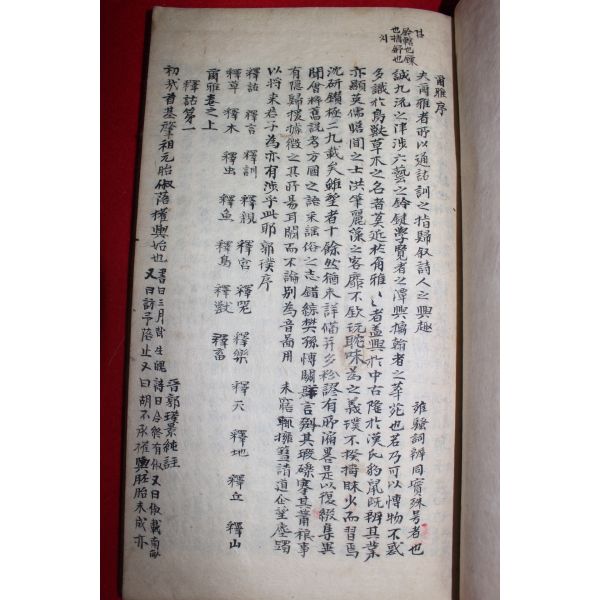 爾雅序
夫爾雅者所以通詁訓之指歸叙詩人之興趣 揔絶代之離詞辨同實殊号者也
誠九流之津涉六藝之鈐鍵學覽者之潭奧摛翰者之華苑也若乃可以博物不惑
多識於鳥獸草木之名者莫近於爾雅〻〻者盖興於中古隆於漢氏豹鼠旣辨其業
亦顯英儒贍聞之士洪筆麗藻之客靡不欽玩耽味為之義璞不揆檮昧少而習焉
沈硏鑽極二九載矣雖註者十餘然猶未詳備並多紛謬有所漏畧是以復綴集異
聞會稡舊說考方國之語采謠俗之志錯綜樊孫博關羣言剟其瑕礫搴其蕭稂事
有隱滯援據徵之其所易了闕而不論別為音啚用 未寤輒擁篲淸道企望塵躅
以將來君子為亦有涉乎此耶 郭璞序
釋詁 釋言 釋訓 釋親 釋宮 釋器 釋樂 釋天 釋地 釋丘 釋山
釋草 釋木 釋虫 釋魚 釋鳥 釋獸 釋畜
爾雅卷之上
釋詁第一 晉郭璞景純註
初哉首基肇祖元胎俶落權輿始也 書曰三月哉生魄詩曰令終有俶又曰俶載南畝
又曰訪予落止又曰胡不承權輿胚胎未成亦